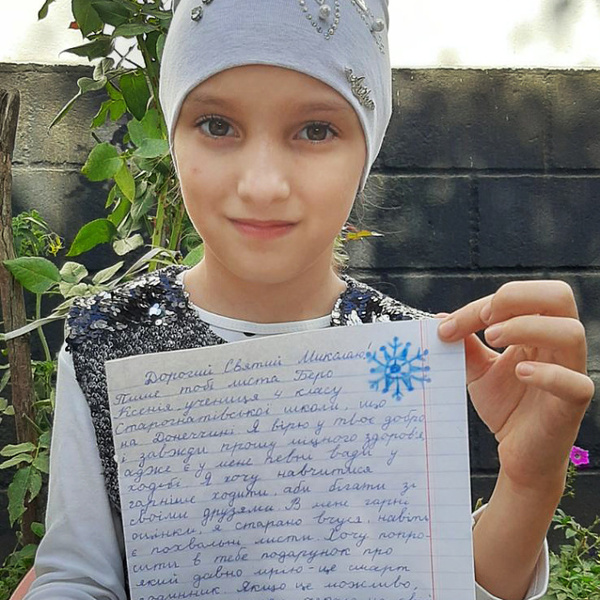 Дорогий Святий Миколаю!
Пише тобі листа Беро
Ксенія, учениця 4 класу
Старогнатівської школи, що
на Донеччині. Я вірю у твоє добро
і завжди прошу міцного здоров'я,
адже є у мене певні вади у
ходьбі. Я хочу навчитися
гарніше ходити, аби бігати зі
своїми друзями. В мене гарні
оцінки, я старано вчуся, навіть
є похвальні листи. Хочу попро-
сити в тебе подарунок про
який давно мрію - це смарт
годинник. Якщо це можливо,